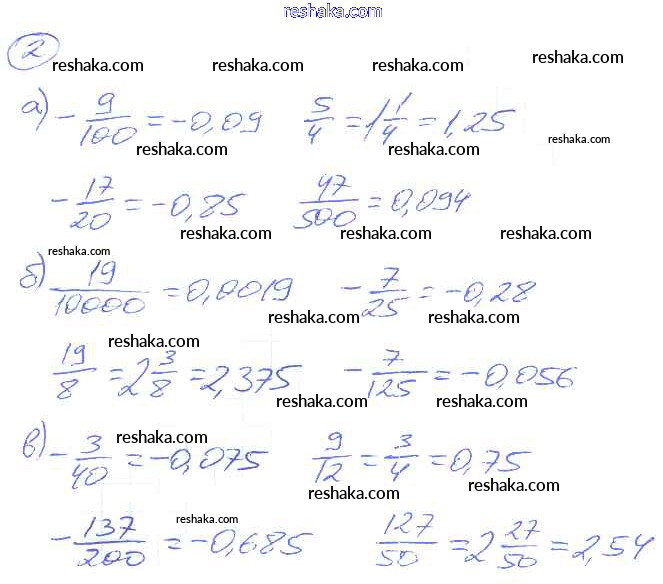 reshaka.com
2
reshaka.com reshaka.com reshaka.com reshaka.com
а) -9/100 = -0,09 5/4 = 1 1/4 = 1,25
reshaka.com reshaka.com reshaka.com
-17/20 = -0,85 47/500 = 0,094
reshaka.com reshaka.com reshaka.com
reshaka.com
б) 19/10000 = 0,0019 -7/25 = -0,28
reshaka.com reshaka.com
reshaka.com
19/8 = 2 3/8 = 2,375 -7/125 = -0,056
reshaka.com reshaka.com
reshaka.com
в) -3/40 = -0,075 9/12 = 3/4 = 0,75
reshaka.com reshaka.com
reshaka.com
-137/200 = -0,685 127/50 = 2 27/50 = 2,54